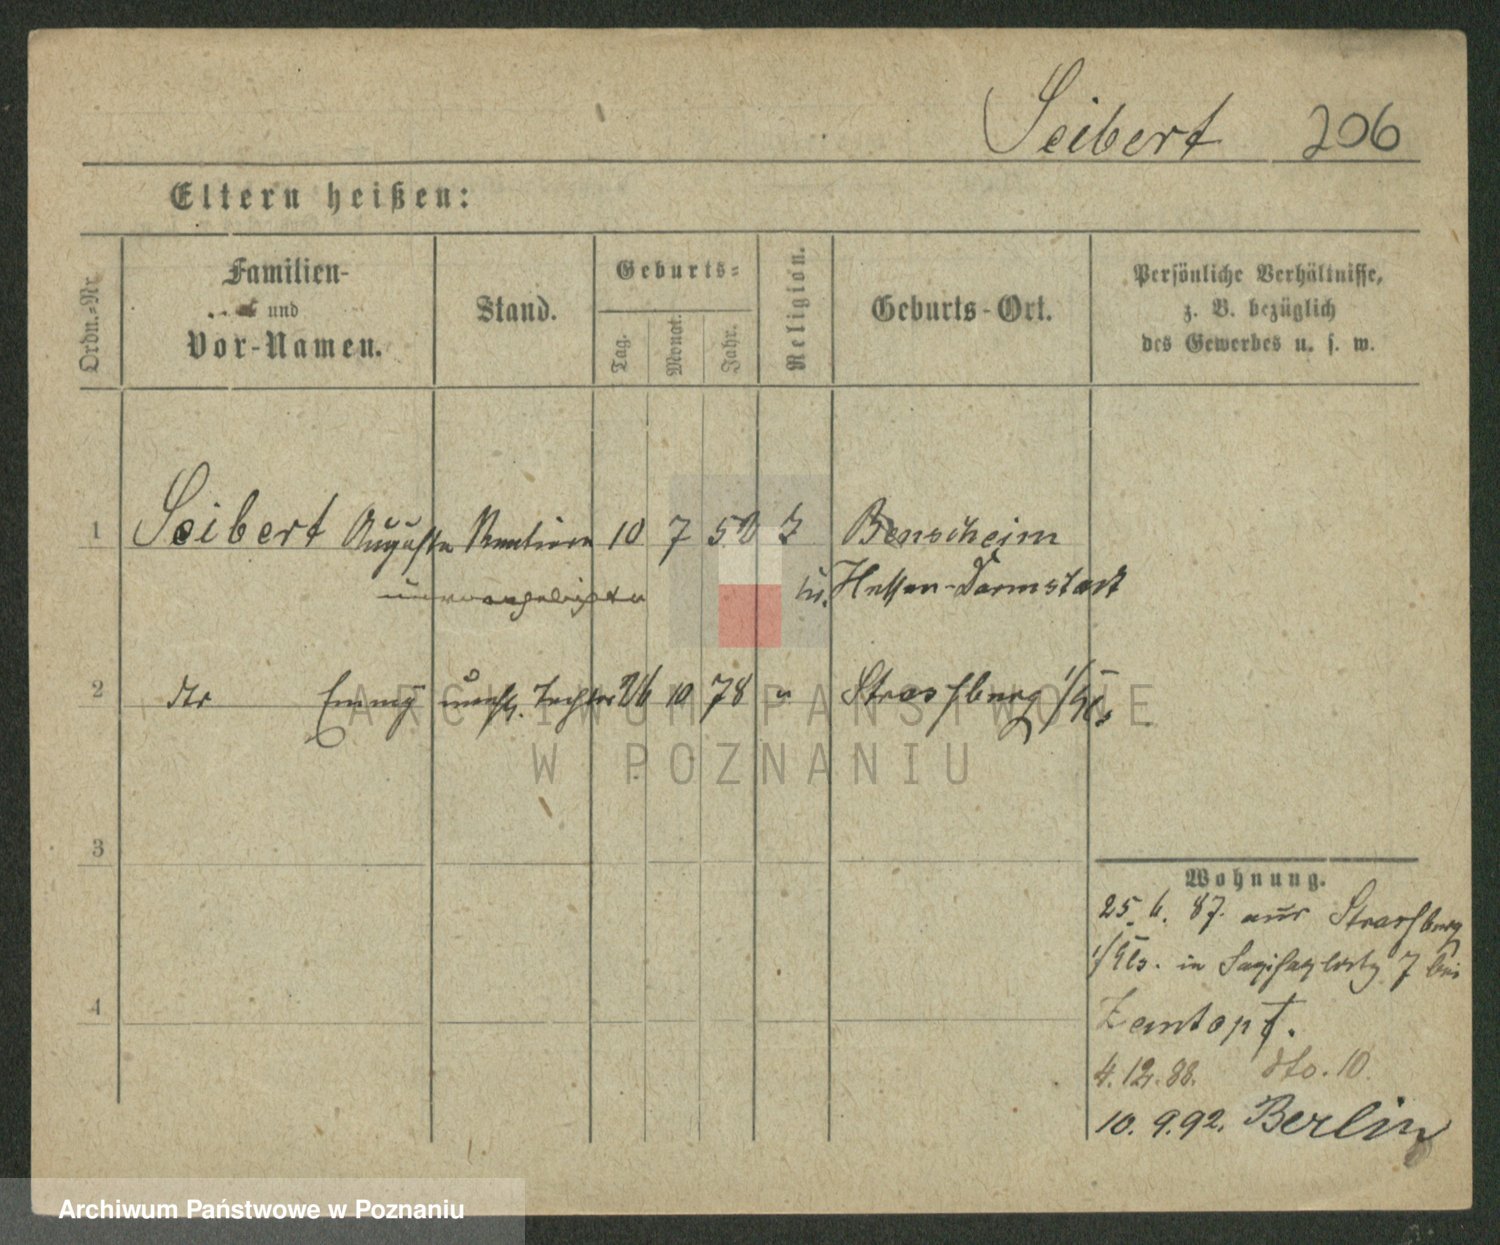 Seibert 206
Eltern heißen:
Ordn.-Nr.
Familien-
und
Vor-Namen.
Stand.
Geburts-
Tag.
Monat.
Jahr.
Religion.
Geburts-Ort.
Persönliche Verhältnisse,
z. B. bezüglich
des Gewerbes u. s. w.
1 Seibert Auguste 10 7 52 Benscheim
Hessen-Darmstadt
2 dto Emmy Tochter 26 10 78 " Strassburg i/Els
3
4
Wohnung.
25. 6. 87. aus Strassburg
i/Els. in 7 bei
4. 12. 88. dto. 10.
10. 9. 92. Berlin
ARCHIWUM PAŃSTWOWE
W POZNANIU
Archiwum Państwowe w Poznaniu